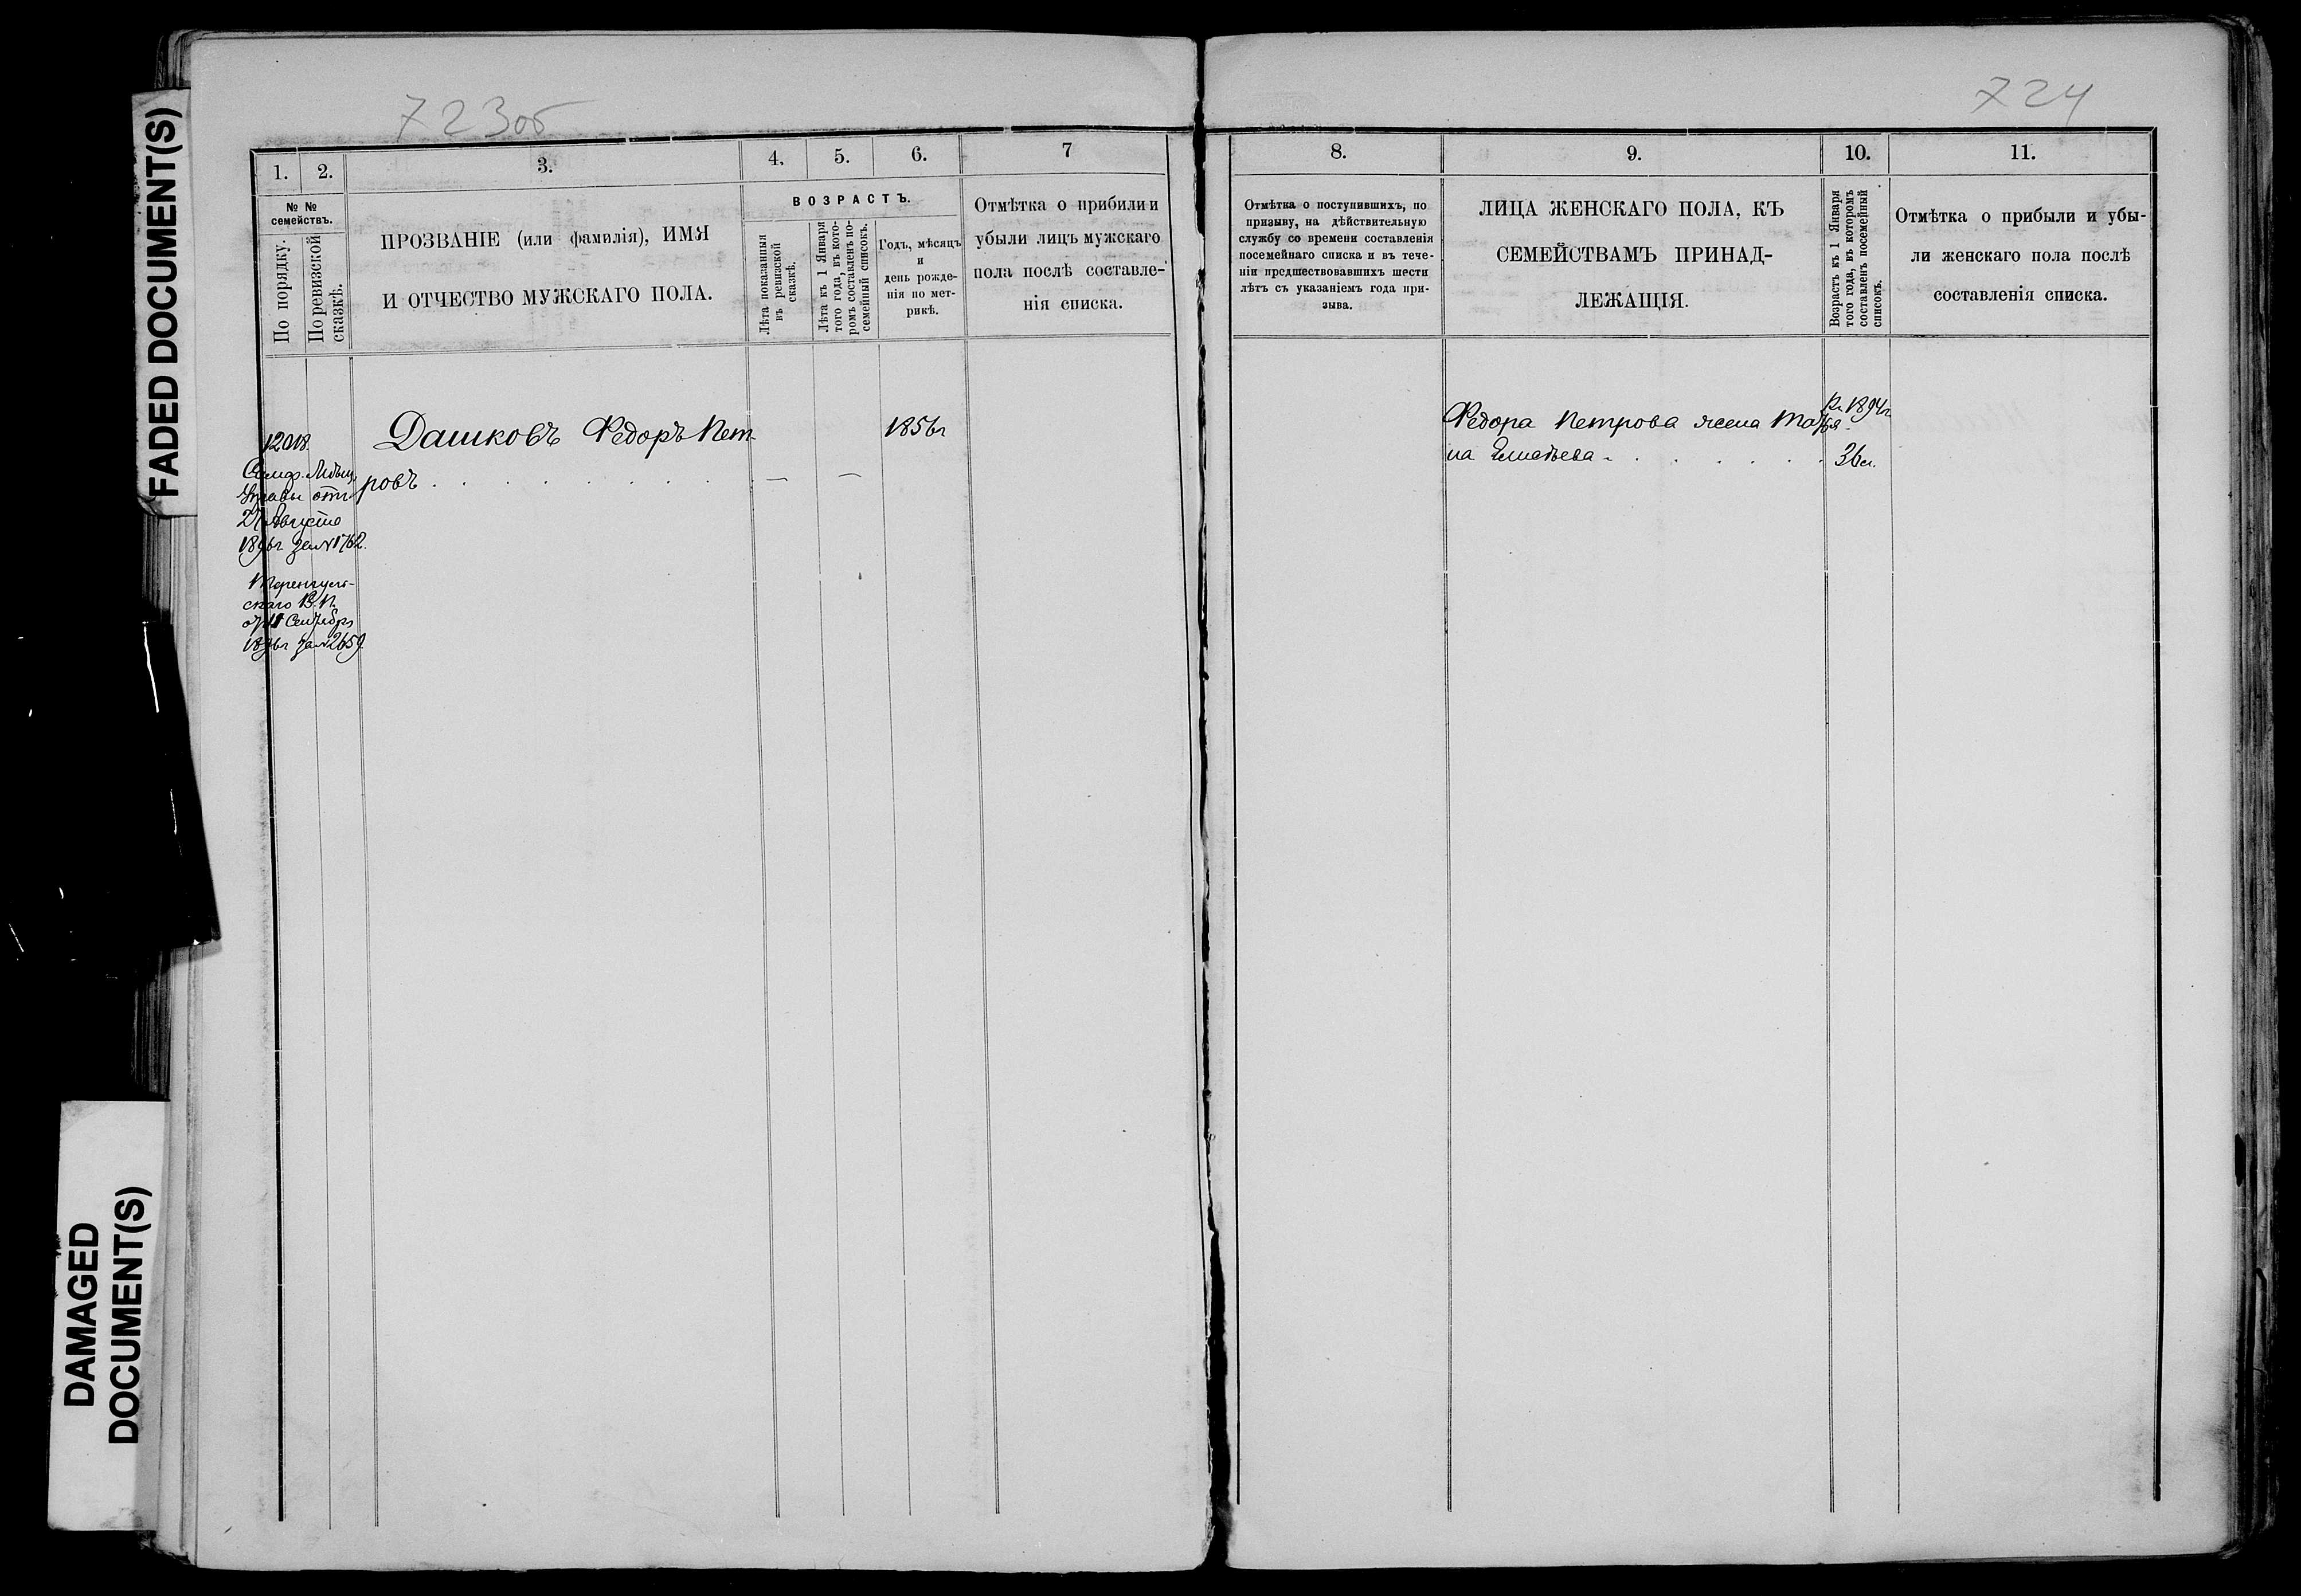 FADED DOCUMENT(S)
DAMAGED
DOCUMENT(S)
723об
1. 2. 3. 4. 5. 6. 7
№ №
семействъ.
По порядку.
По ревизской
сказкѣ.
ПРОЗВАНІЕ (или фамилія), ИМЯ
И ОТЧЕСТВО МУЖСКАГО ПОЛА.
ВОЗРАСТЪ.
Лѣта показанныя
въ ревизской
сказкѣ.
Лѣта къ 1 Января
того года, въ кото-
ромъ составленъ по-
семейный списокъ.
Годъ, мѣсяцъ
и
день рожде-
нія по мет-
рикѣ.
Отмѣтка о прибыли и
убыли лицъ мужскаго
пола послѣ составле-
нія списка.
1201
Дашковъ Ѳедоръ Пет-
ровъ . . . . . . . — —
1856г
Управы отъ
27 Августа
1896г за № 1762.
скаго В. П.
1896г за № 2659
724
8. 9. 10. 11.
Отмѣтка о поступившихъ, по
призыву, на дѣйствительную
службу со времени составленія
посемейнаго списка и въ тече-
ніи предшествовавшихъ шести
лѣтъ съ указаніемъ года при-
зыва.
ЛИЦА ЖЕНСКАГО ПОЛА, КЪ
СЕМЕЙСТВАМЪ ПРИНАД-
ЛЕЖАЩІЯ.
Возрастъ къ 1 Января
того года, въ которомъ
составленъ посемейный
списокъ.
Отмѣтка о прибыли и убы-
ли женскаго пола послѣ
составленія списка.
Ѳедора Петрова жена 1894г
36л.